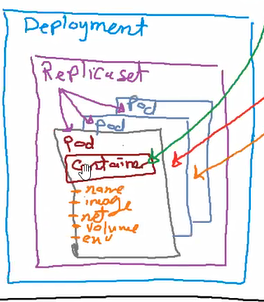 Deployment
Replicaset
Pod
Pod
Pod
Container
name
image
net
volume
env